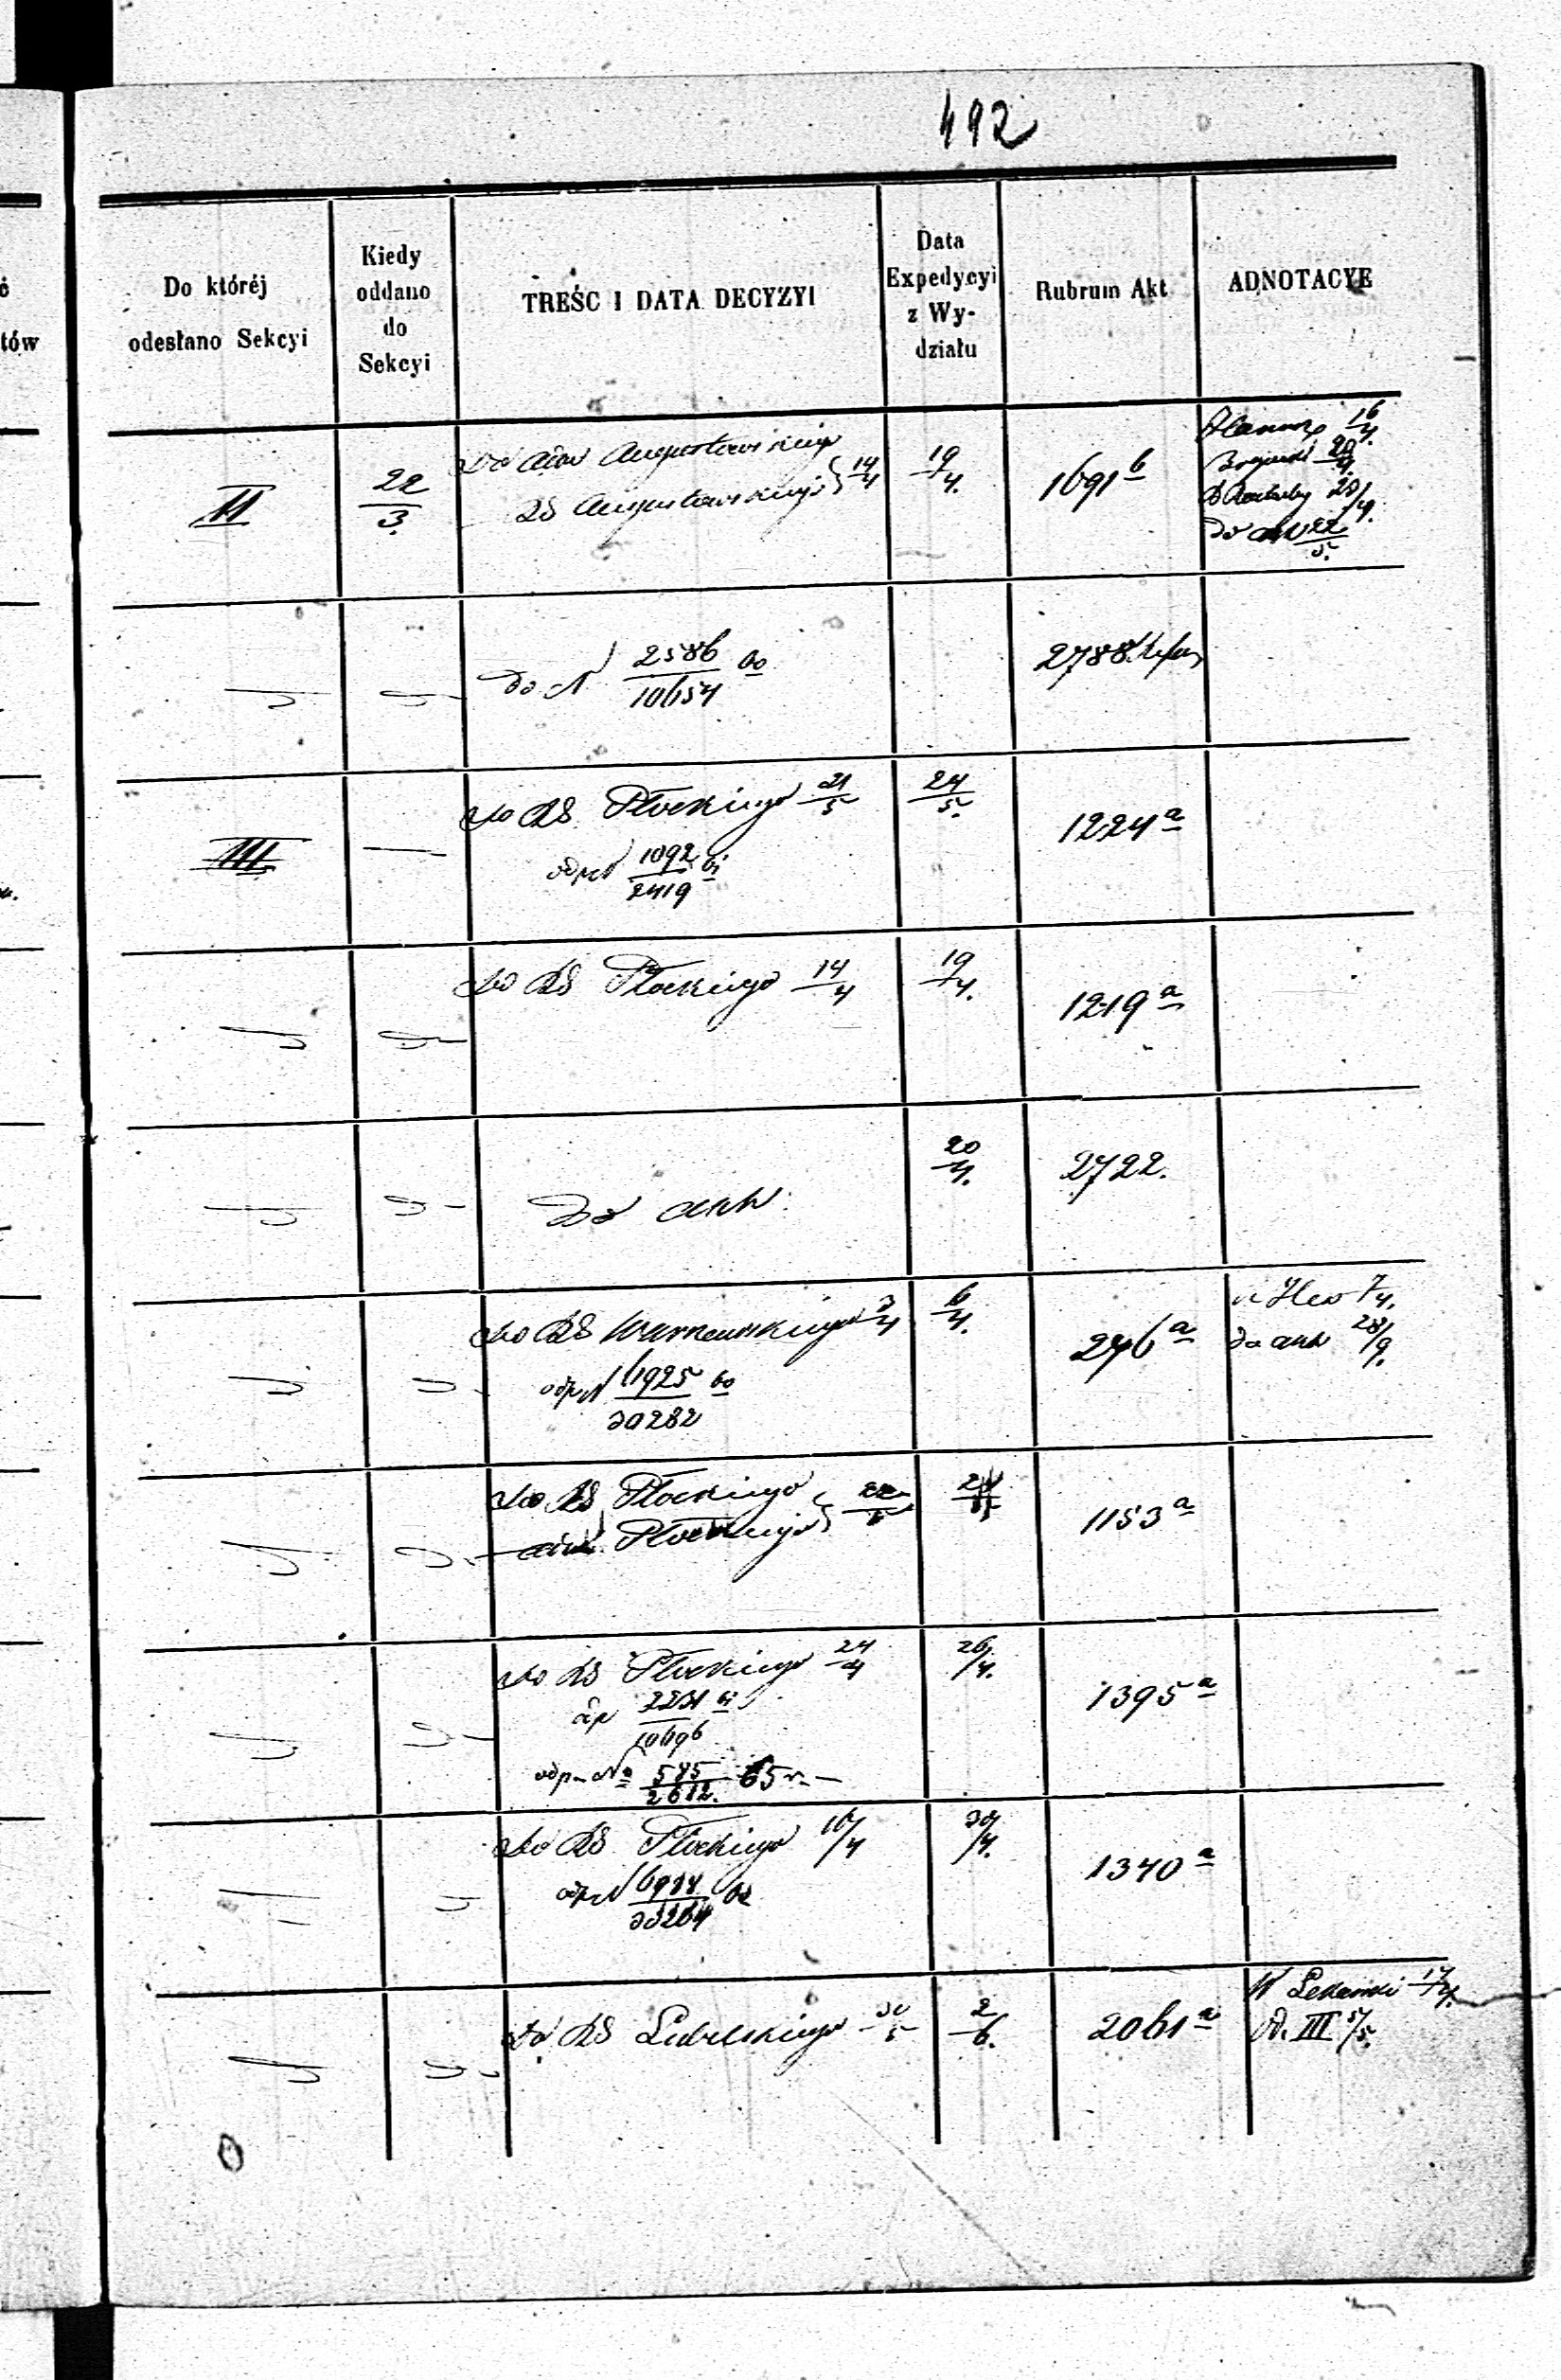 492
Do któréj
odesłano Sekcyi
Kiedy
oddano
do
Sekcyi
TREŚC I DATA DECYZYI
Data
Expedycyi
z Wy-
działu
Rubrum Akt
ADNOTACYE
tów
II
22/3.
Do Augustowskiego
RS Augustowskiego } 14/4
19/4.
1691 b
16/4.
20/4.
20/4.
do akt 22/5.
do N 2586/10654 60
2788.
III
Do RS Płockiego 21/5
odp N 1092/2419 61
24/5.
1224 a
Do RS Płockiego 14/4
19/4.
1219 a
do akt.
20/4.
2722.
Do RS Warszawskiego 3/4
odp N 6925/30282 60
6/4.
276 a
7/4.
do akt 28/9.
Do RS Płockiego
Płockiego } 22/5
24/5
1153 a
Do RS Płockiego 24/4
10696
odp. No 585/2612. 65 r.
26/4.
1395 a
Do RS Płockiego 16/4
odp N
30/4.
1340 a
Do RS Lubelskiego 30/5
2/6.
2061 a
W 17/4.
Od. III 5/5.